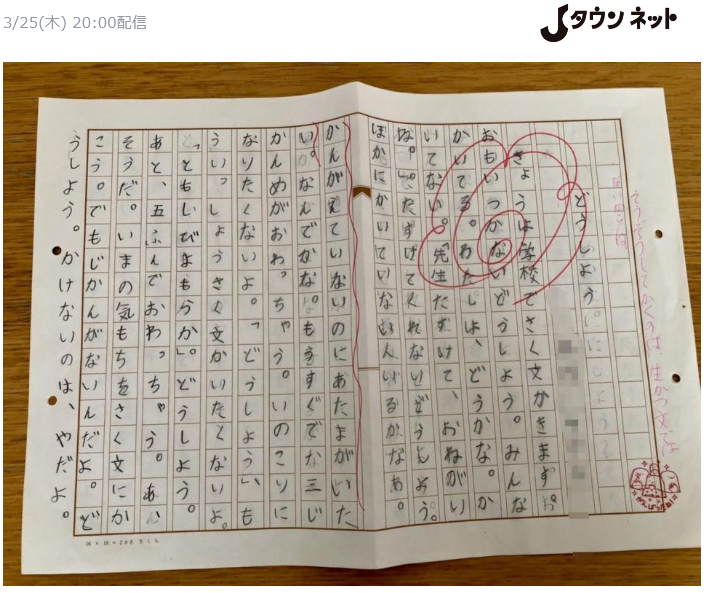 3/25(木) 20:00配信
Jタウンネット
そうぞうしてかくのは、生かつ文では
どうしよう。
きょうは学校でさく文かきます。
おもいつかないどうしよう。みんな
かいてる。わたしは、どうかな。か
いてない。「先生たすけて、おねがい
ね。」たすけてくれないどうしよう。
ほかにかいていない人いるかなあ。
かんがえていないのにあたまがいた
い。なんでかな。もうすぐで三じ
かんめがおわっちゃう。いのこりに
なりたくないよ。「どうしよう」も
ういっしょうさく文かいたくないよ。
「ともしびまもらか」。どうしよう。
あと、五ふんでおわっちゃう。あ、
そうだ。いまの気もちをさく文にか
こう。でもじかんがないんだよ。ど
うしよう。かけないのは、やだよ。